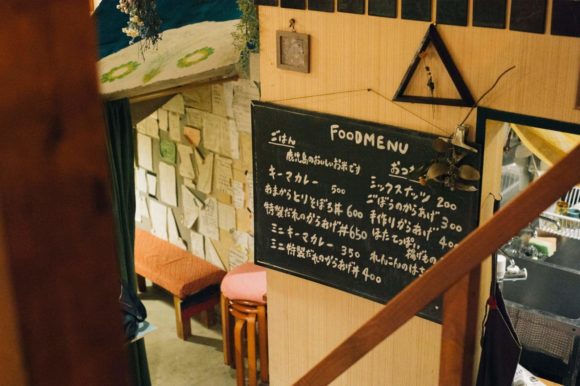 FOODMENU
ごはん
鹿児島のおいしいお米です
キーマカレー 500
あまからとりそぼろ丼 600
特製だれのからあげ丼 650
ミニキーマカレー 350
ミニ特製だれのからあげ丼 400
おつ
ミックスナッツ 200
ごぼうのからあげ 300
手作りからあげ 400
ほたてっぽい
れんこんのはさ